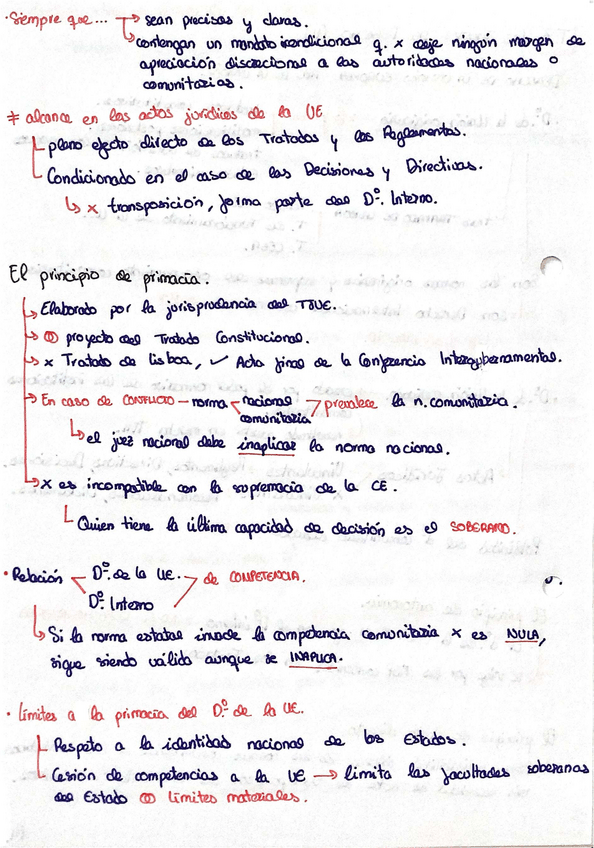 · Siempre que... → sean precisas y claras.
↳ contengan un mandato incondicional q. x deje ningún margen de
apreciación discrecional a las autoridades nacionales o
comunitarias.
≠ alcance en los actos jurídicos de la UE
pleno efecto directo de los Tratados y los Reglamentos.
Condicionado en el caso de las Decisiones y Directivas.
↳ x transposición, forma parte del Dº. Interno.
El principio de primacía.
↳ Elaborado por la jurisprudencia del TJUE.
→ proyecto del Tratado Constitucional.
→ x Tratado de Lisboa, ✓ Acta final de la Conferencia Intergubernamental.
→ En caso de CONFLICTO - norma nacional prevalece la n. comunitaria.
comunitaria
↳ el juez nacional debe inaplicar la norma nacional.
→ x es incompatible con la supremacía de la CE.
Quien tiene la última capacidad de decisión es el SOBERANO.
· Relación Dº. de la UE. → de COMPETENCIA.
Dº. Interno
↳ Si la norma estatal invade la competencia comunitaria x es NULA,
sigue siendo válida aunque se INAPLICA.
· Límites a la primacía del Dº. de la UE.
Respeto a la identidad nacional de los Estados.
Cesión de competencias a la UE → limita las facultades soberanas
del Estado límites materiales.